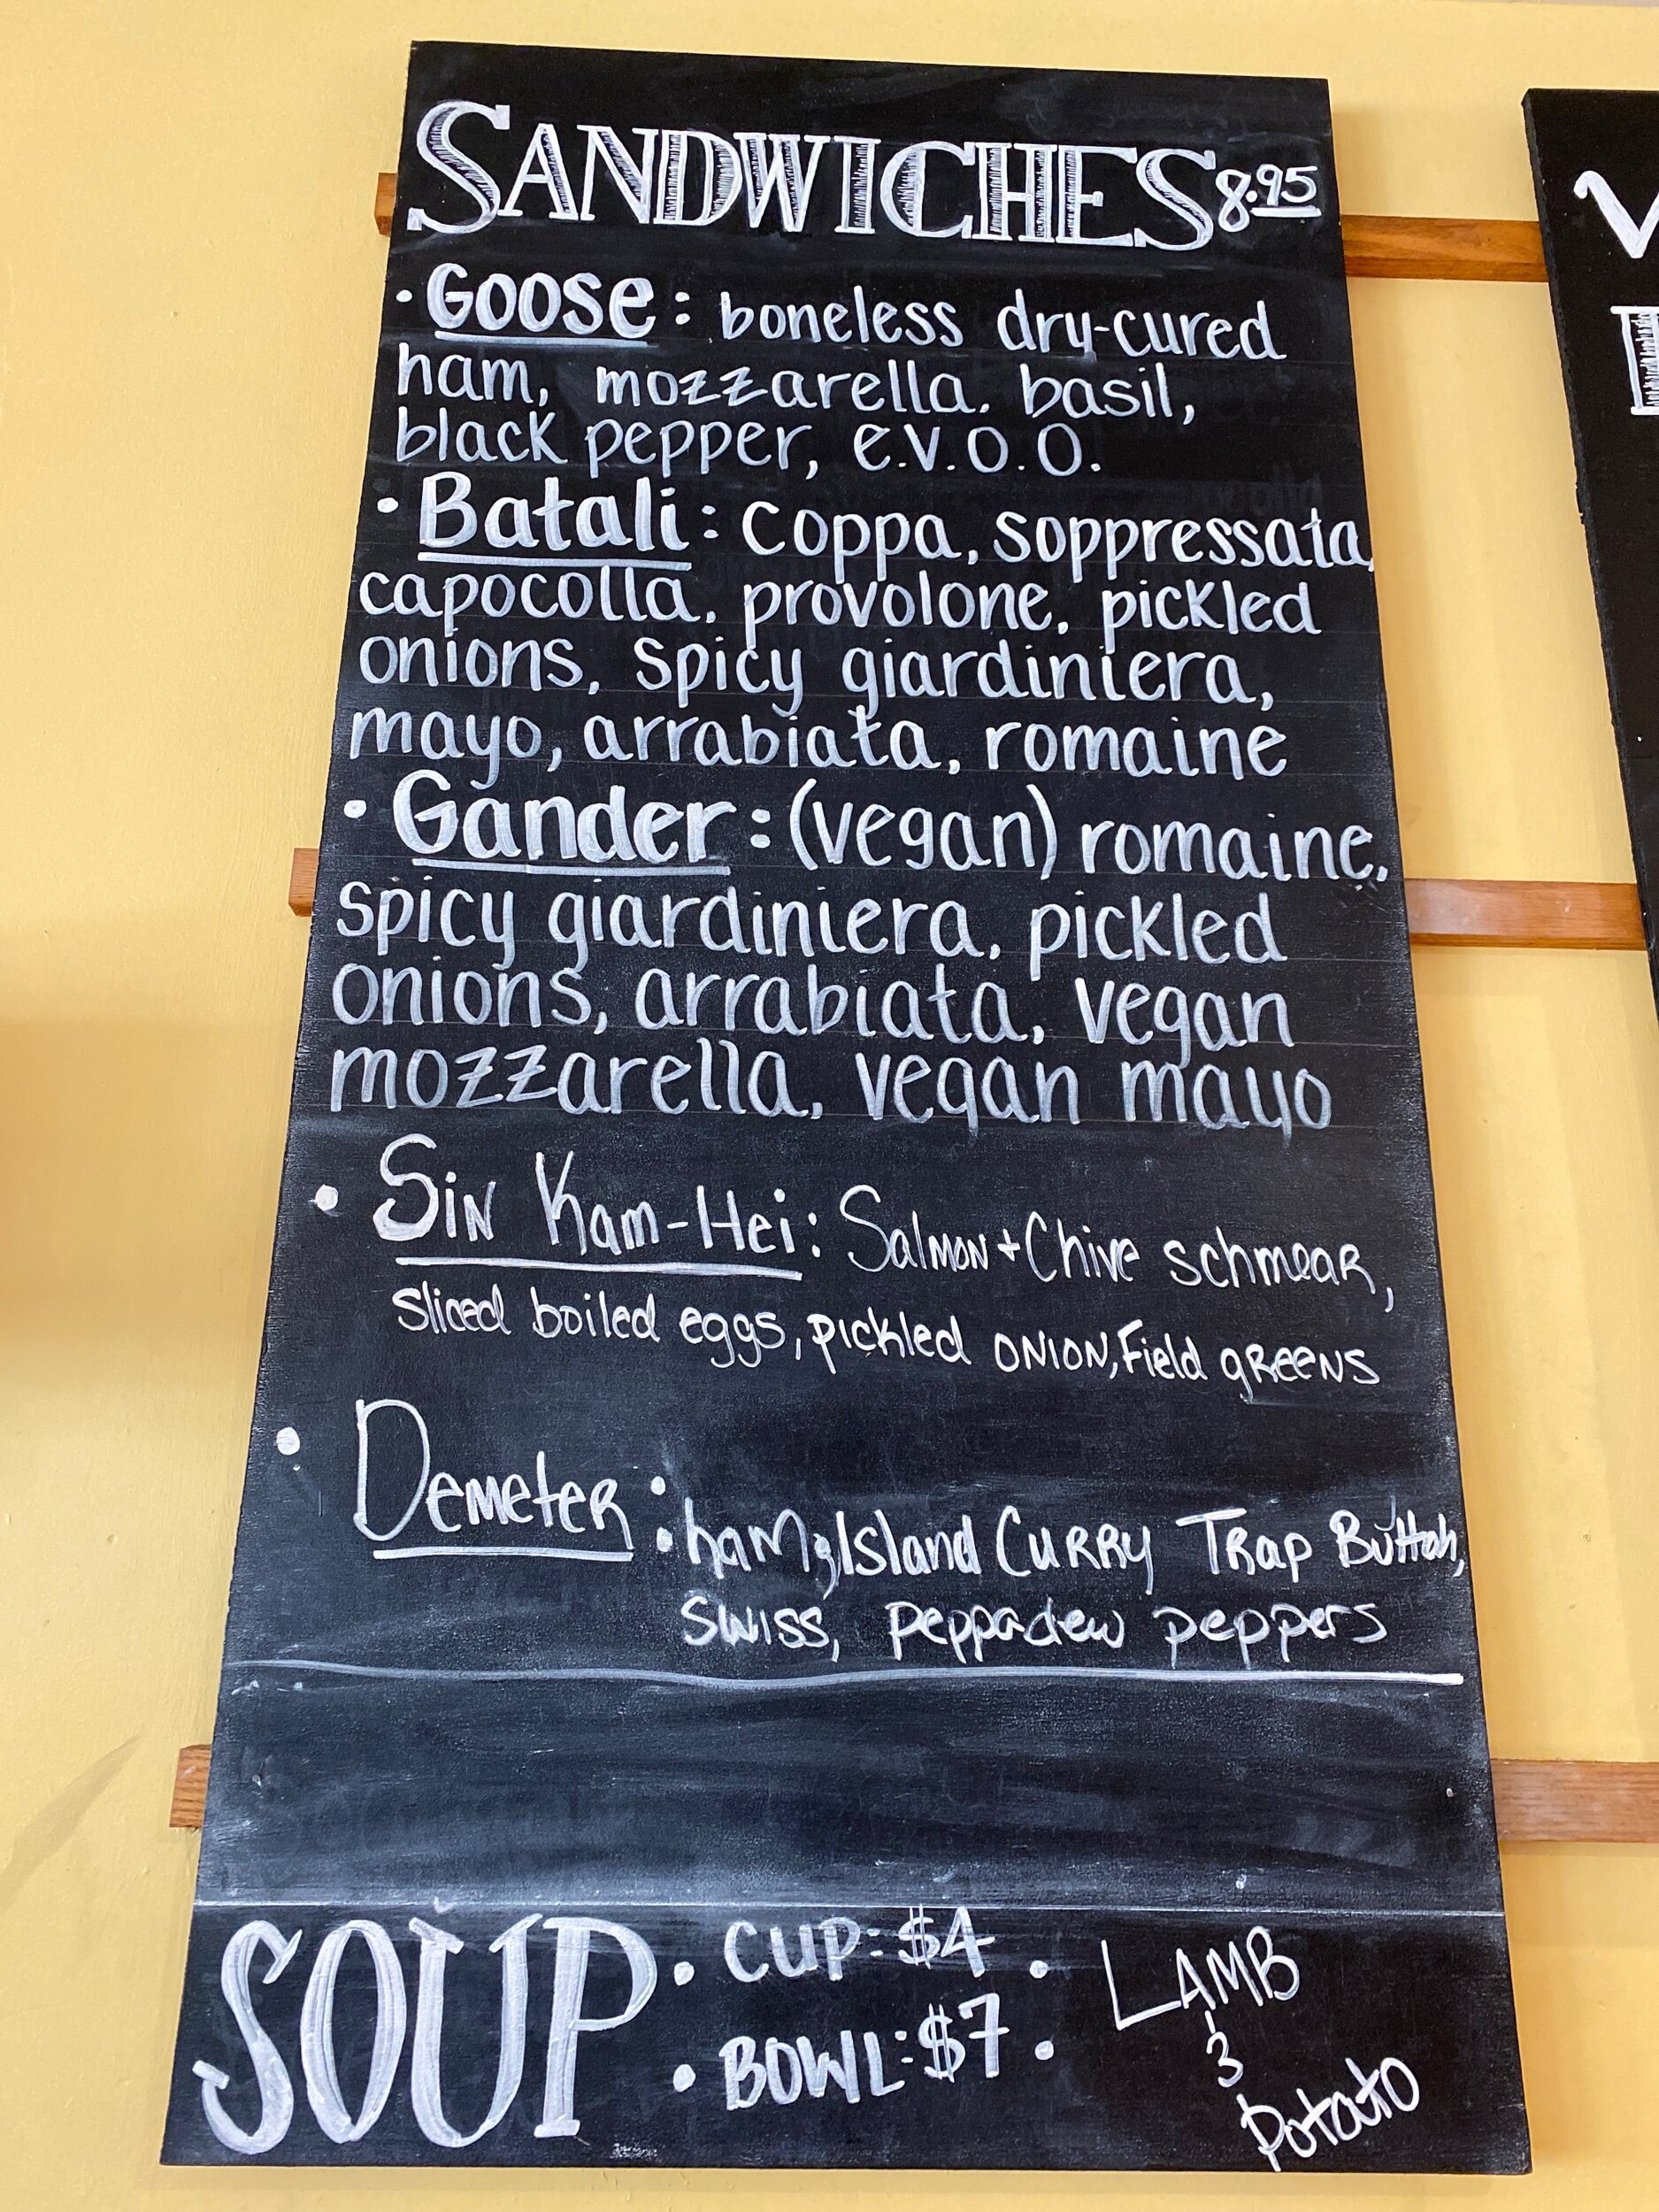 SANDWICHES 8.95
• Goose: boneless dry-cured
ham, mozzarella, basil,
black pepper, e.v.o.o.
• Batali: coppa, soppressata,
capocolla, provolone, pickled
onions, spicy giardiniera,
mayo, arrabiata, romaine
• Gander: (vegan) romaine,
spicy giardiniera, pickled
onions, arrabiata, vegan
mozzarella, vegan mayo
• Sin Kam-Hei: Salmon + Chive schmear,
sliced boiled eggs, pickled onion, field greens
• Demeter: ham, Island Curry Trap Buttah,
swiss, peppadew peppers
SOUP • CUP: $4 •
• BOWL: $7 •
LAMB
&
Potato